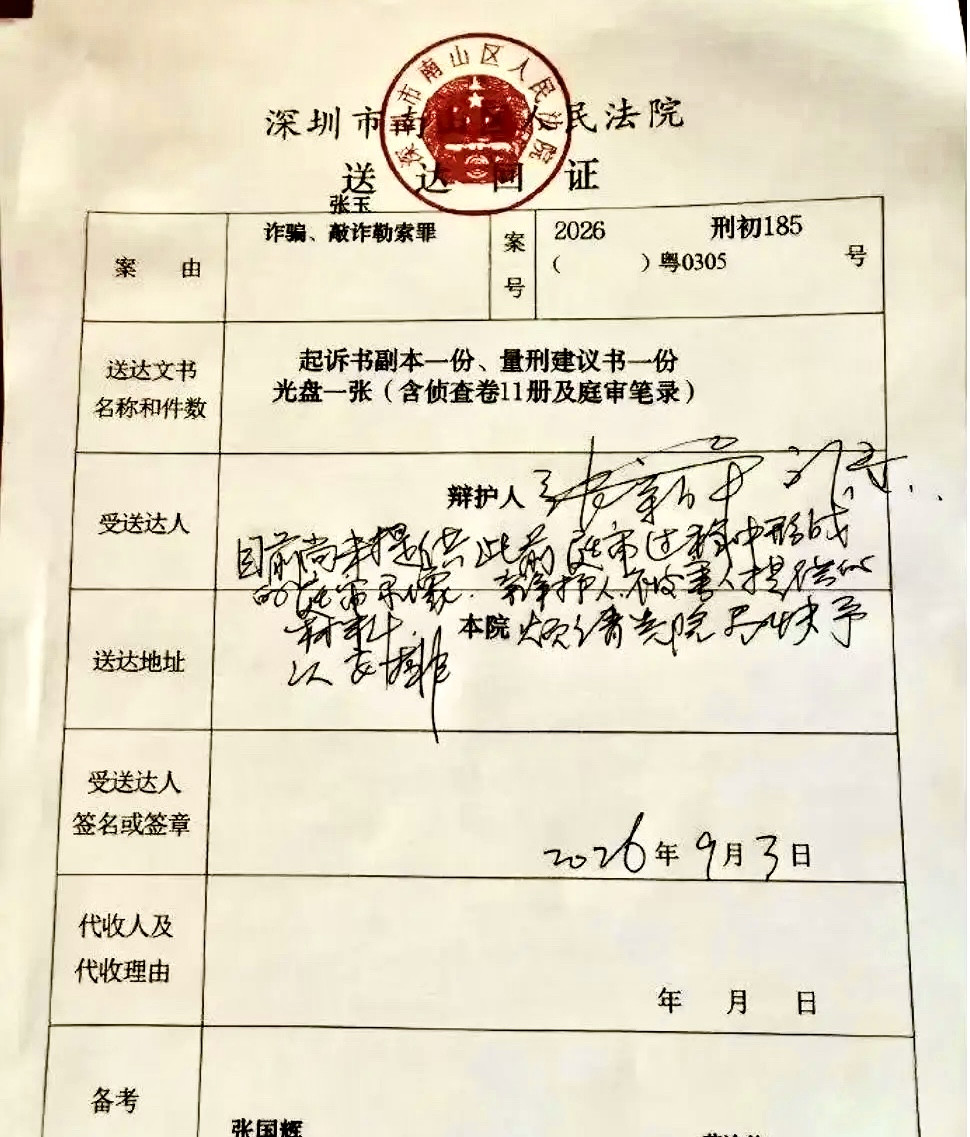 深圳市南山区人民法院
深圳市南山区人民法院
送达回证
案由
张玉
诈骗、敲诈勒索罪
案号
2026 刑初185
( )粤0305 号
送达文书
名称和件数
起诉书副本一份、量刑建议书一份
光盘一张（含侦查卷11册及庭审笔录）
受送达人
辩护人
目前尚未提供此前庭审过程中形成
的庭审录像、辩护人、被害人提供的
材料. 烦请贵院尽快予
以安排
送达地址
本院
受送达人
签名或签章
2026年9月3日
代收人及
代收理由
年 月 日
备考
张国辉